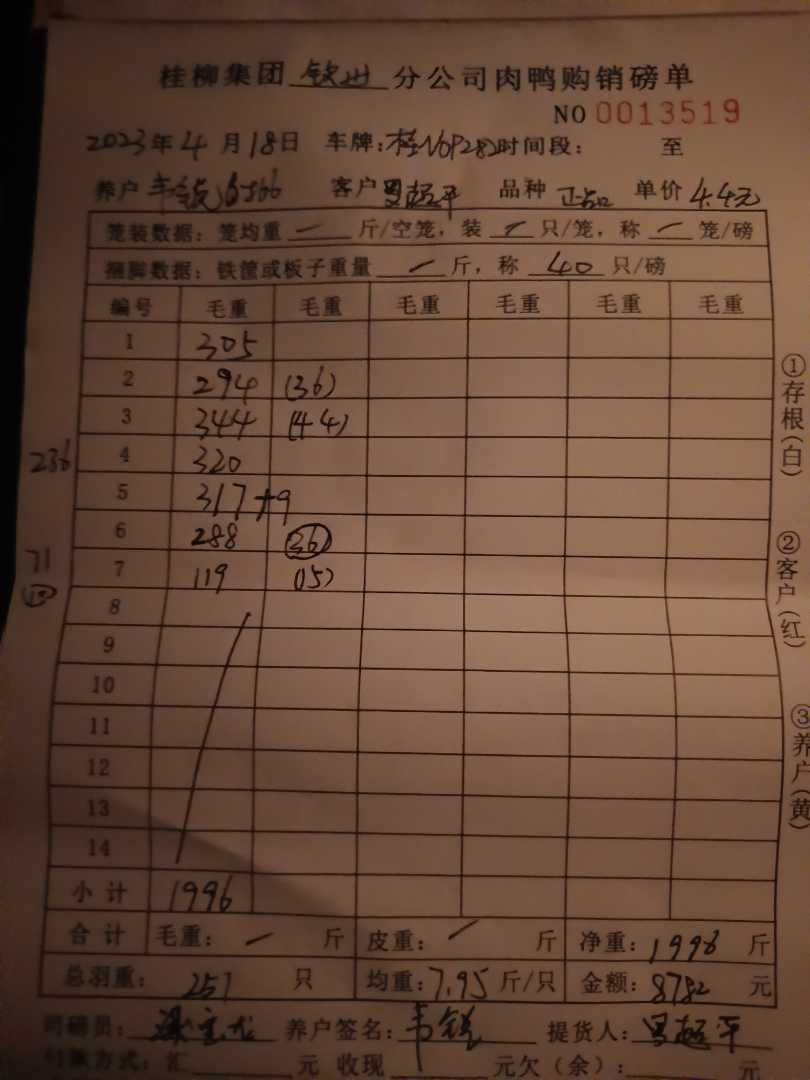 桂柳集团 钦州 分公司肉鸭购销磅单
NO 0013519
2023年4月18日 车牌:桂N0P282 时间段: 至
养户 韦锐 客户 品种 正品 单价 4.4元
笼装数据:笼均重 一 斤/空笼,装 一 只/笼,称 一 笼/磅
捆脚数据:铁筐或板子重量 一 斤,称 40 只/磅
编号 毛重 毛重 毛重 毛重 毛重 毛重
1 305
2 294 (36)
3 344 (44)
236 4 320
5 317+9
6 288 (36)
71 7 119 (15)
8
9
10
11
12
13
14
小计 1996
合计 毛重: 一 斤 皮重: 一 斤 净重: 1996 斤
总羽重: 251 只 均重: 7.95 斤/只 金额: 8782 元
司磅员: 养户签名: 韦锐 提货人:
付款方式:汇 元 收现 元欠(余): 元
①存根(白)
②客户(红)
③养户(黄)